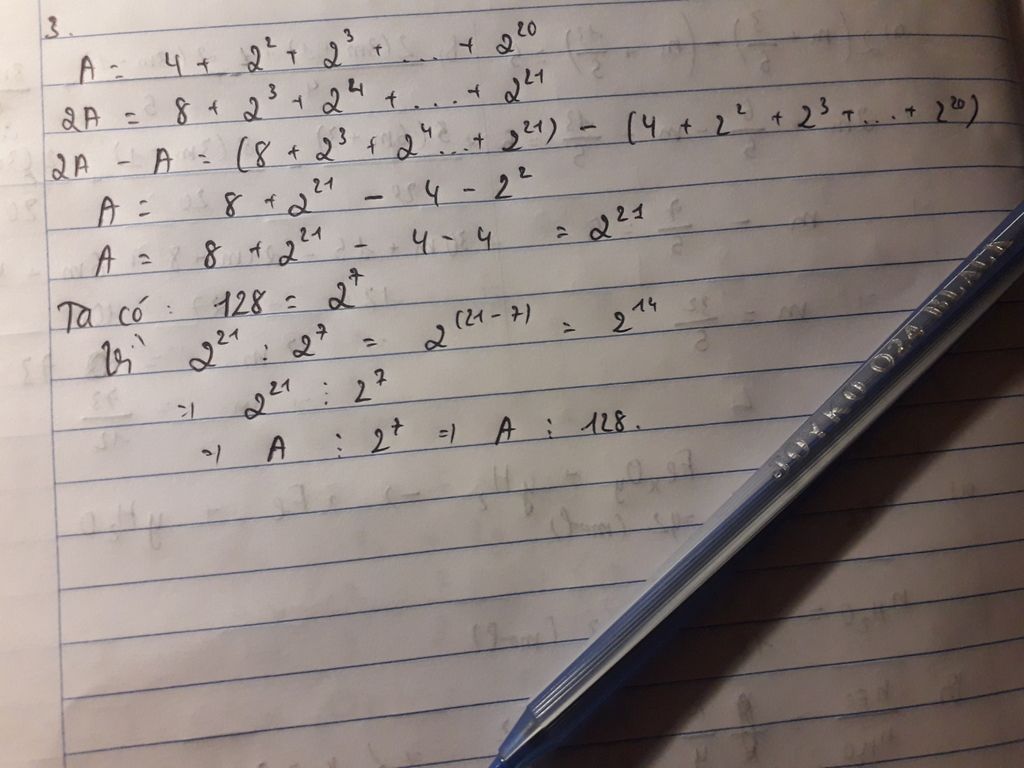 3.
A = 4 + 2² + 2³ + ... + 2²⁰
2A = 8 + 2³ + 2⁴ + ... + 2²¹
2A - A = (8 + 2³ + 2⁴ ... + 2²¹) - (4 + 2² + 2³ + ... + 2²⁰)
A = 8 + 2²¹ - 4 - 2²
A = 8 + 2²¹ - 4 - 4 = 2²¹
Ta có : 128 = 2⁷
Vì 2²¹ : 2⁷ = 2⁽²¹⁻⁷⁾ = 2¹⁴
⇒ 2²¹ ⋮ 2⁷
⇒ A ⋮ 2⁷ ⇒ A ⋮ 128.